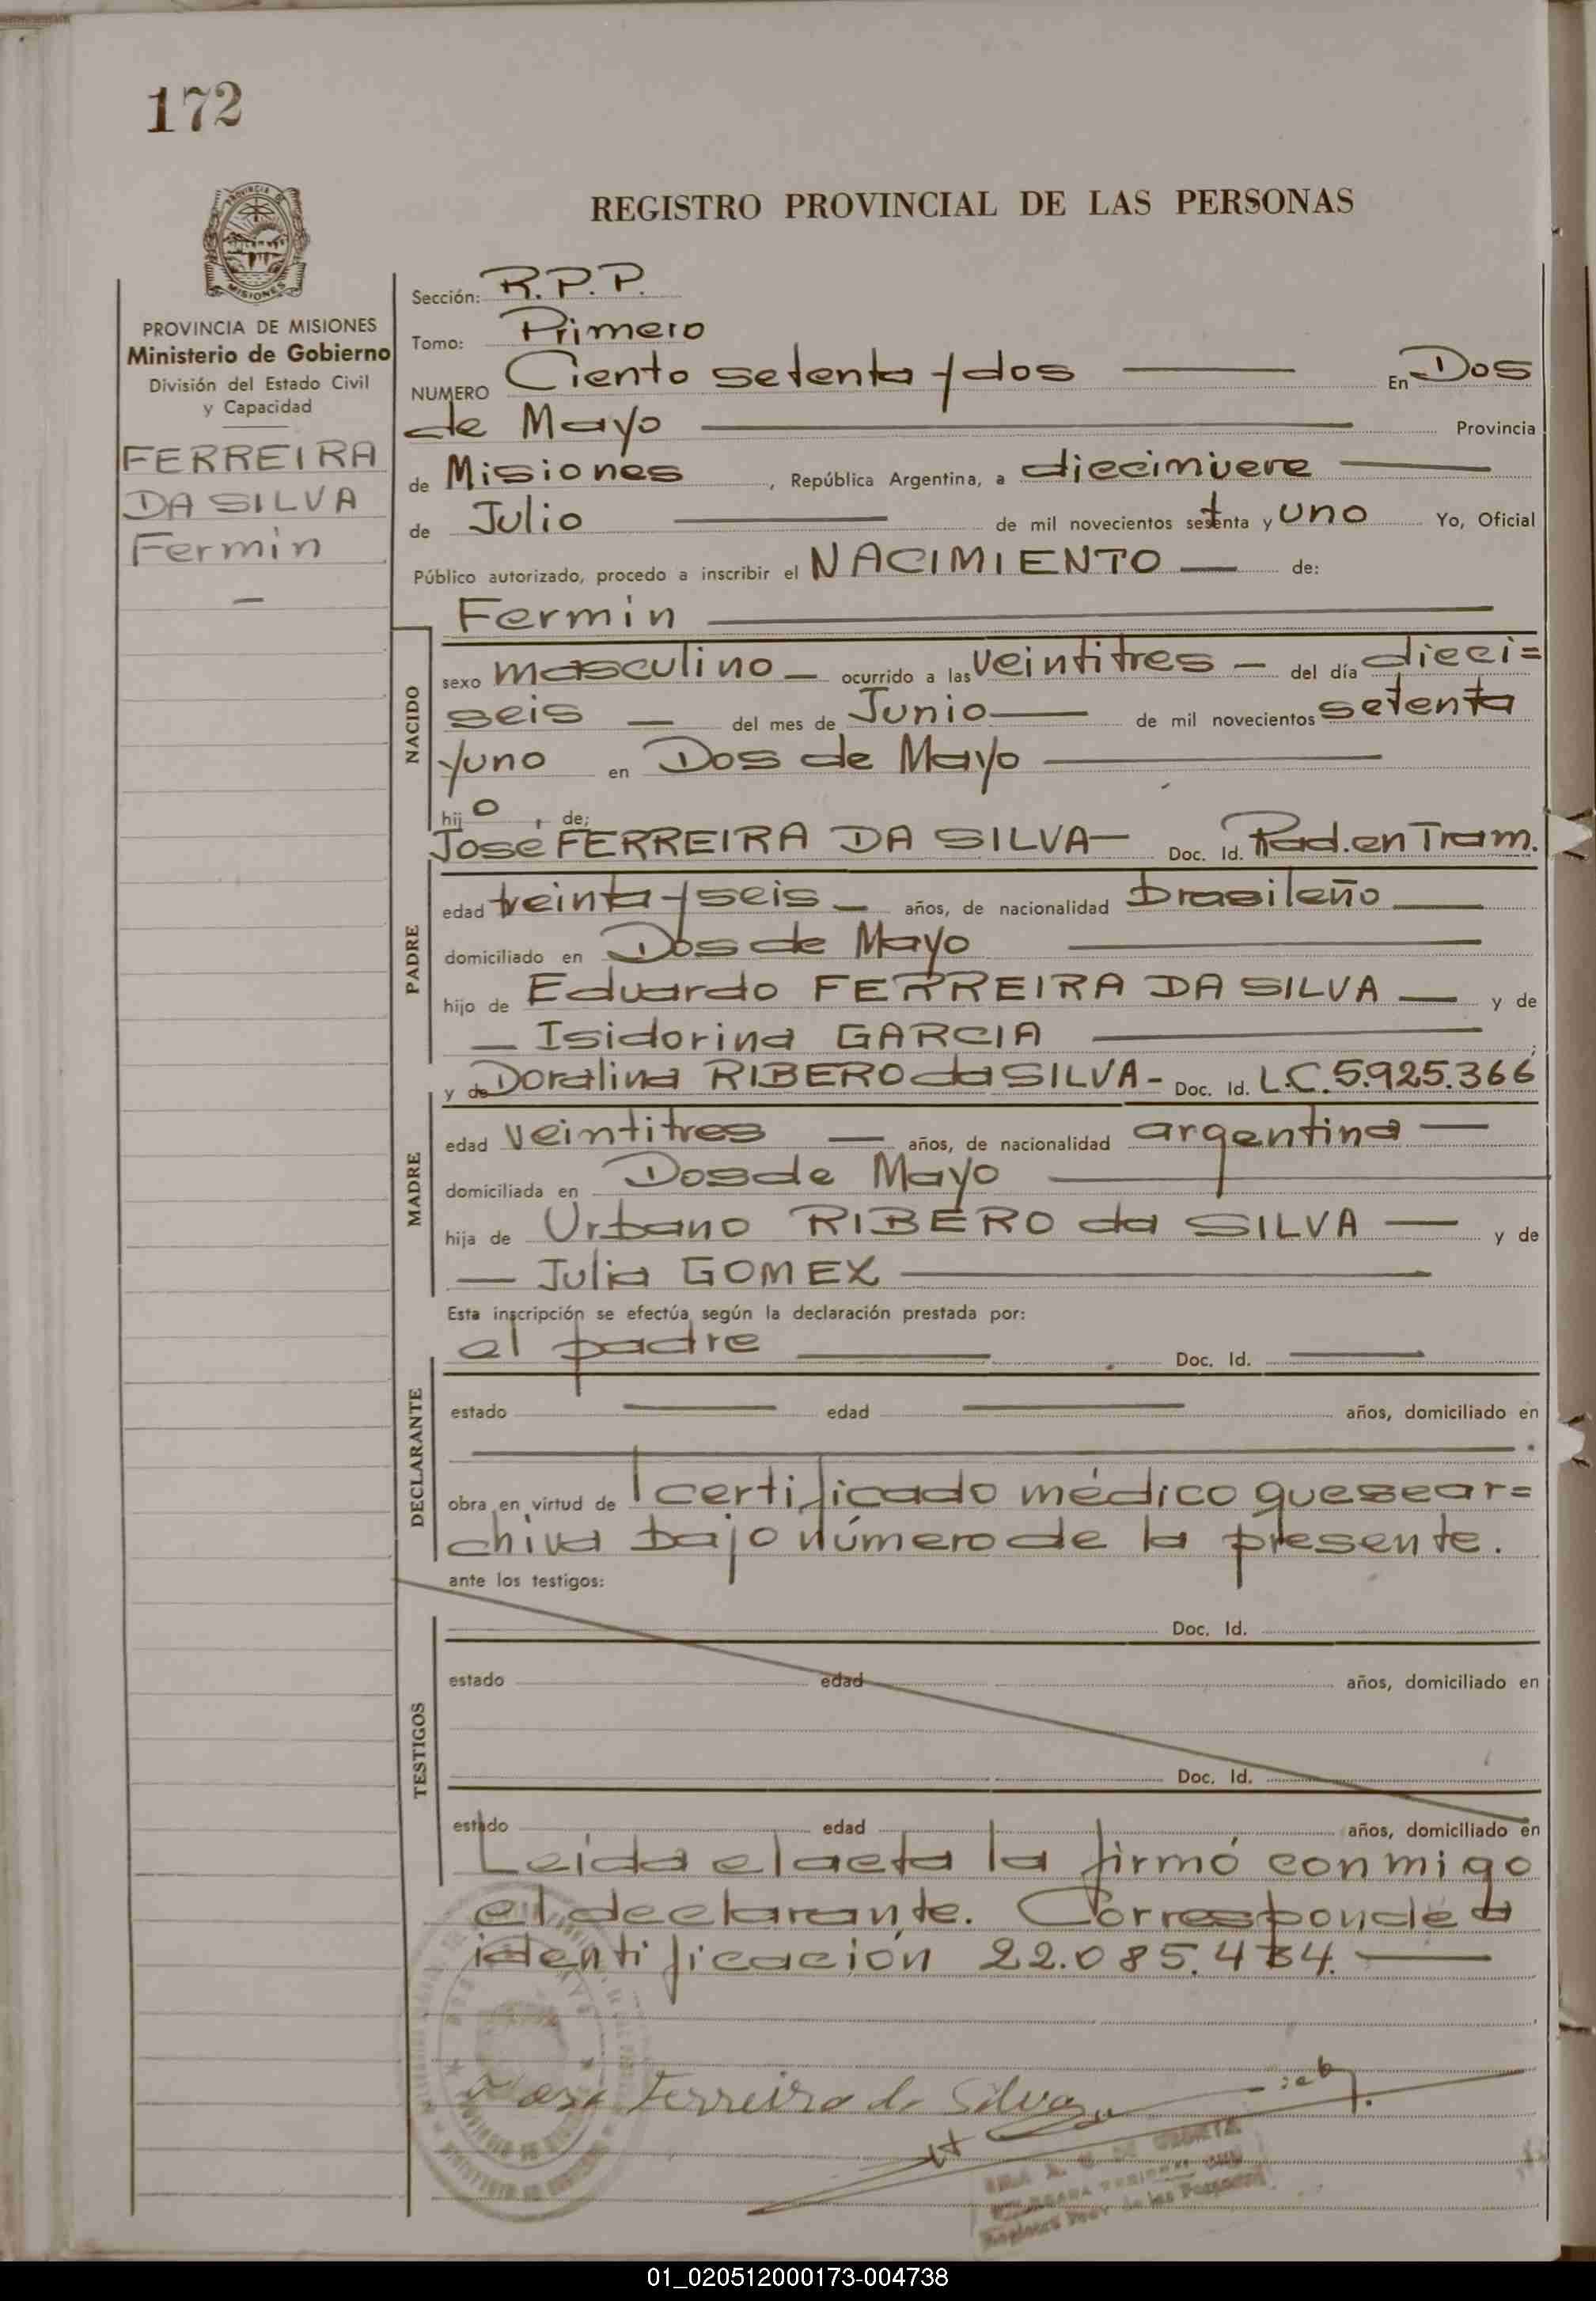 172
PROVINCIA
MISIONES
PROVINCIA DE MISIONES
Ministerio de Gobierno
División del Estado Civil
y Capacidad
FERREIRA
DA SILVA
Fermin
REGISTRO PROVINCIAL DE LAS PERSONAS
Sección: R.P.P.
Tomo: Primero
NUMERO Ciento setenta y dos En Dos
de Mayo Provincia
de Misiones, República Argentina, a diecinueve
de Julio de mil novecientos setenta y uno Yo, Oficial
Público autorizado, procedo a inscribir el NACIMIENTO de:
Fermin
NACIDO
sexo masculino ocurrido a las veintitres del día dieci=
seis del mes de Junio de mil novecientos setenta
y uno en Dos de Mayo
hijo, de:
José FERREIRA DA SILVA Doc. Id. Rad. en Tram.
PADRE
edad treinta y seis años, de nacionalidad brasileño
domiciliado en Dos de Mayo
hijo de Eduardo FERREIRA DA SILVA y de
Isidorina GARCIA
y de Doralina RIBERO da SILVA - Doc. Id. L.C. 5.925.366
MADRE
edad veintitres años, de nacionalidad argentina
domiciliada en Dos de Mayo
hija de Urbano RIBERO da SILVA y de
Julia GOMEZ
Esta inscripción se efectúa según la declaración prestada por:
el padre Doc. Id.
DECLARANTE
estado edad años, domiciliado en
obra en virtud de certificado médico que se ar=
chiva bajo número de la presente.
ante los testigos:
TESTIGOS
Doc. Id.
estado edad años, domiciliado en
Doc. Id.
estado edad años, domiciliado en
Leida el acta la firmó conmigo
el declarante. Corresponde a
identificación
Jose Ferreira da Silva
01_020512000173-004738